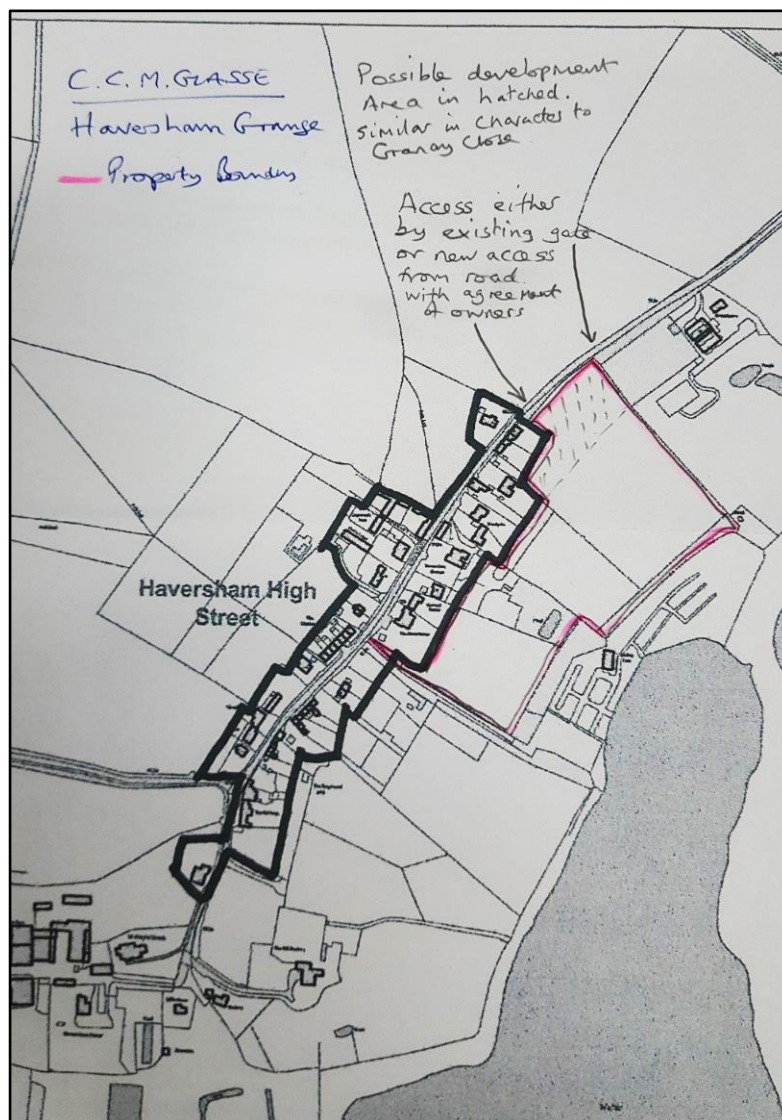 C. C. M. GLASSE
Haversham Grange
Property Boundary
Possible development
Area in hatched.
similar in character to
Granary Close
Access either
by existing gate
or new access
from road
with agreement
of owners
Haversham High
Street